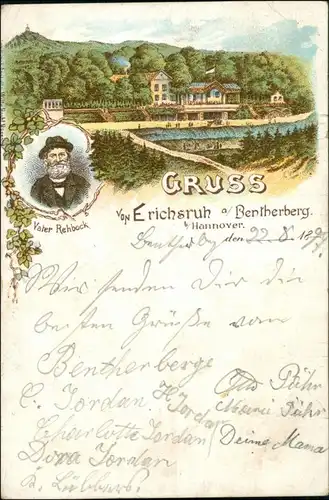 GRUSS
VON Erichsruh a/ Bentherberg.
b/ Hannover.
Vater Rehbock
Bentherbg den 22. 8. 1897
Wir senden Dir die
besten Grüße vom
Bentherberge
C. Jordan H. Jordan
Charlotte Jordan
Dora Jordan
u. Lübbers.
Otto Führ
Marie Führ
Deine Mama